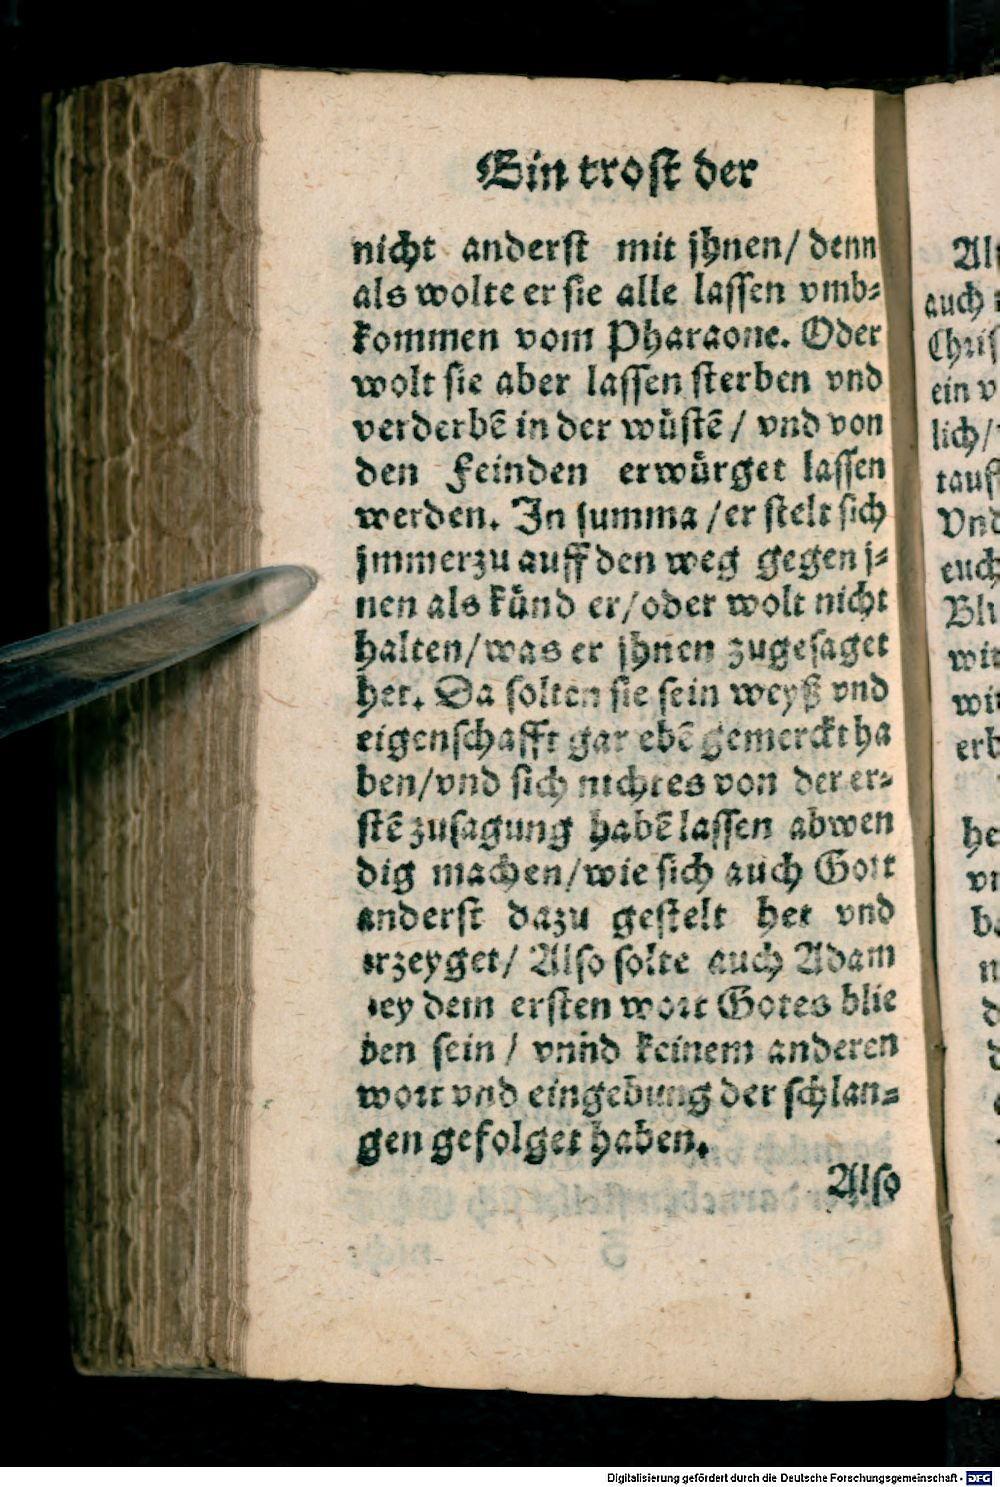 Ein trost der
nicht anderst mit jhnen/ denn
als wolte er sie alle lassen vmb⸗
kommen vom Pharaone. Oder
wolt sie aber lassen sterben vnd
verderbẽ in der wüstẽ / vnd von
den Feinden erwürget lassen
werden. In summa /er stelt sich
jmmerzu auff den weg gegen j⸗
nen als künd er/oder wolt nicht
halten/was er jhnen zugesaget
het. Da solten sie sein weyß vnd
eigenschafft gar ebẽ gemerckt ha
ben/vnd sich nichtes von der er⸗
stẽ zusagung habẽ lassen abwen
dig machen/wie sich auch Gott
anderst dazu gestelt het vnd
erzeyget/ Also solte auch Adam
bey dem ersten wort Gotes blie
ben sein / vnnd keinem anderen
wort vnd eingebung der schlan⸗
gen gefolget haben.
Also
Als
auch
Chris
ein v
lich/
tauff
Vnd
euch
Blu
wir
wir
erb
he
Digitalisierung gefördert durch die Deutsche Forschungsgemeinschaft - DFG